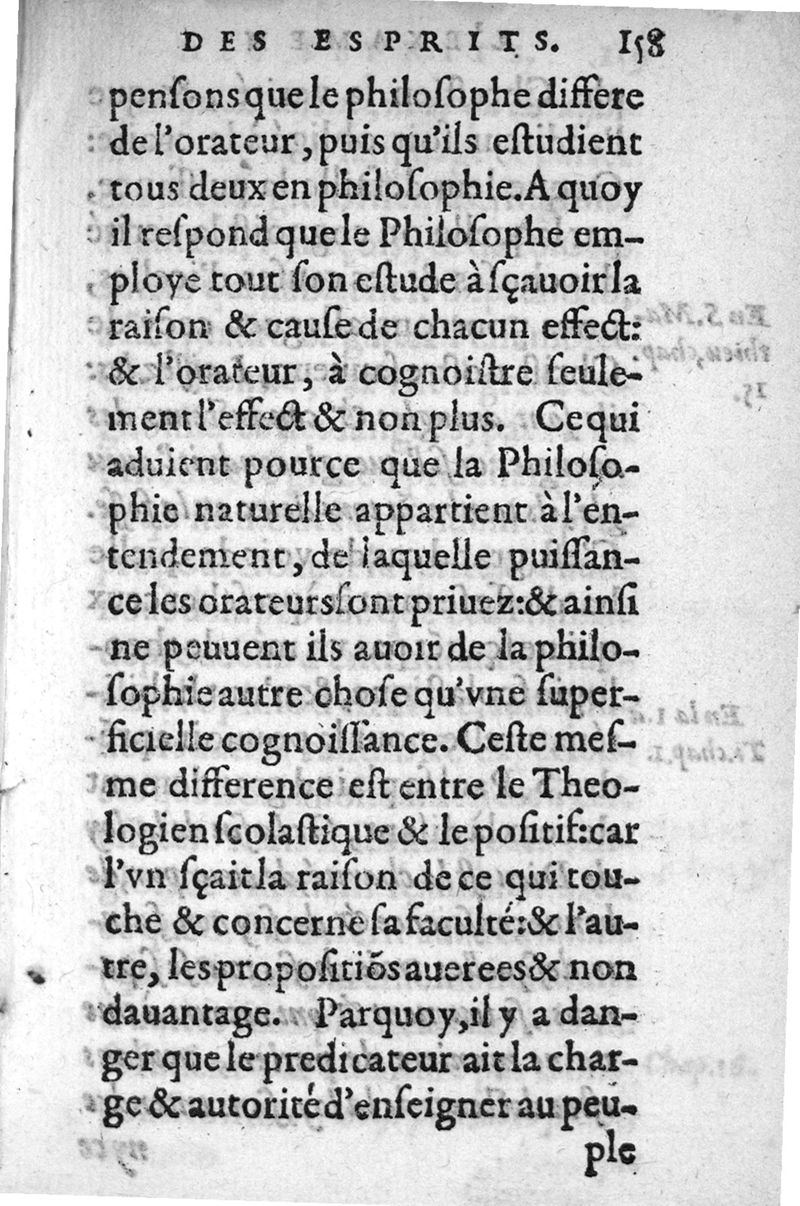 DES ESPRITS. 158
penſons que le philoſophe differe
de l'orateur, puis qu'ils eſtudient
tous deux en philoſophie. A quoy
il reſpond que le Philoſophe em-
ploye tout ſon eſtude à ſçauoir la
raiſon & cauſe de chacun effect:
& l'orateur, à cognoiſtre ſeule-
ment l'effect & non plus. Ce qui
aduient pource que la Philoſo-
phie naturelle appartient à l'en-
tendement, de laquelle puiſſan-
ce les orateurs ſont priuez: & ainſi
ne peuuent ils auoir de la philo-
ſophie autre choſe qu'vne ſuper-
ficielle cognoiſſance. Ceſte meſ-
me difference eſt entre le Theo-
logien ſcolaſtique & le poſitif: car
l'vn ſçait la raiſon de ce qui tou-
che & concerne ſa faculté: & l'au-
tre, les propoſitiōs auerees & non
dauantage. Parquoy, il y a dan-
ger que le predicateur ait la char-
ge & autorité d'enſeigner au peu-
ple